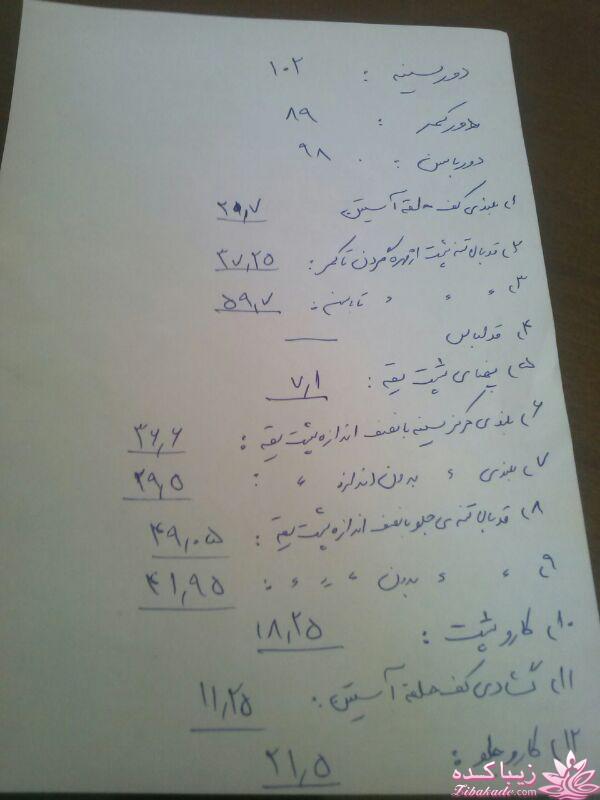 دور سینه : ۱۰۲
دور کمر : ۸۹
دور باسن : ۹۸
۱) بلندی کف حلقه آستین ۲۰٫۷
۲) قد بالاتنه پشت از مهره گردن تا کمر : ۳۷٫۲۵
۳) " " " تا باسن : ۵۹٫۷
۴) قد لباس —
۵) پهنای پشت یقه : ۷٫۱
۶) بلندی مرکز سینه با نصف اندازه پشت یقه : ۳۶٫۶
۷) بلندی " بدون اندازه " : ۲۹٫۵
۸) قد بالاتنه ی جلو با نصف اندازه پشت یقه : ۴۹٫۰۵
۹) " " بدون " " " : ۴۱٫۹۵
۱۰) کارو پشت : ۱۸٫۲۵
۱۱) گشادی کف حلقه آستین : ۱۱٫۲۵
۱۲) کارو جلو : ۲۱٫۵
زیباکده
Zibakade.com